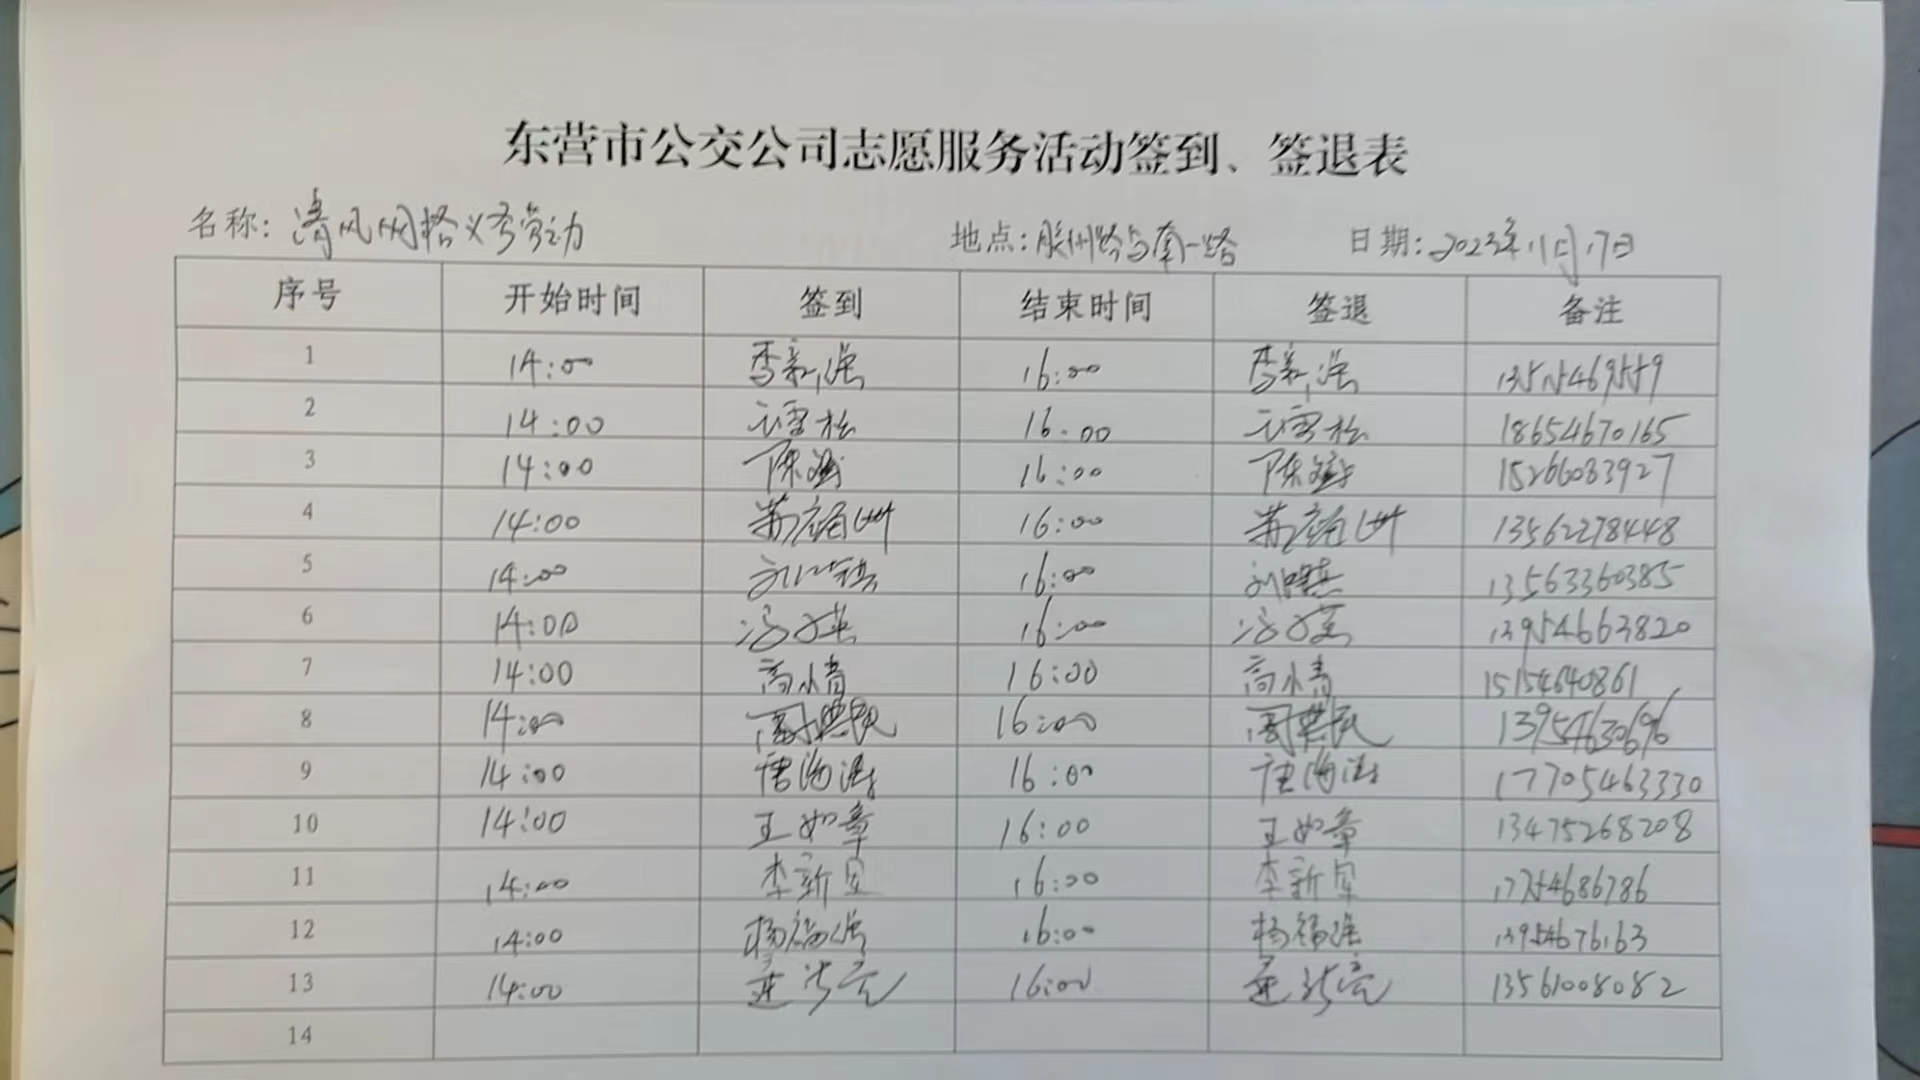 东营市公交公司志愿服务活动签到、签退表
名称：清风网格义务劳动 地点：胶州路与南一路 日期：2023年11月17日
序号 开始时间 签到 结束时间 签退 备注
1 14:00 李新强 16:00 李新强 13515469559
2 14:00 雪松 16:00 雪松 18654670165
3 14:00 陈 16:00 陈 15266083927
4 14:00 16:00 13562278448
5 14:00 刘 16:00 刘 13563360385
6 14:00 冯 16:00 冯 13954663820
7 14:00 高小青 16:00 高小青 15154640861
8 14:00 周典民 16:00 周典民 13954630696
9 14:00 唐海涛 16:00 唐海涛 17705463330
10 14:00 王如章 16:00 王如章 13475268208
11 14:00 李新 16:00 李新 17754686786
12 14:00 杨福强 16:00 杨福强 13954676163
13 14:00 16:00 13561008082
14